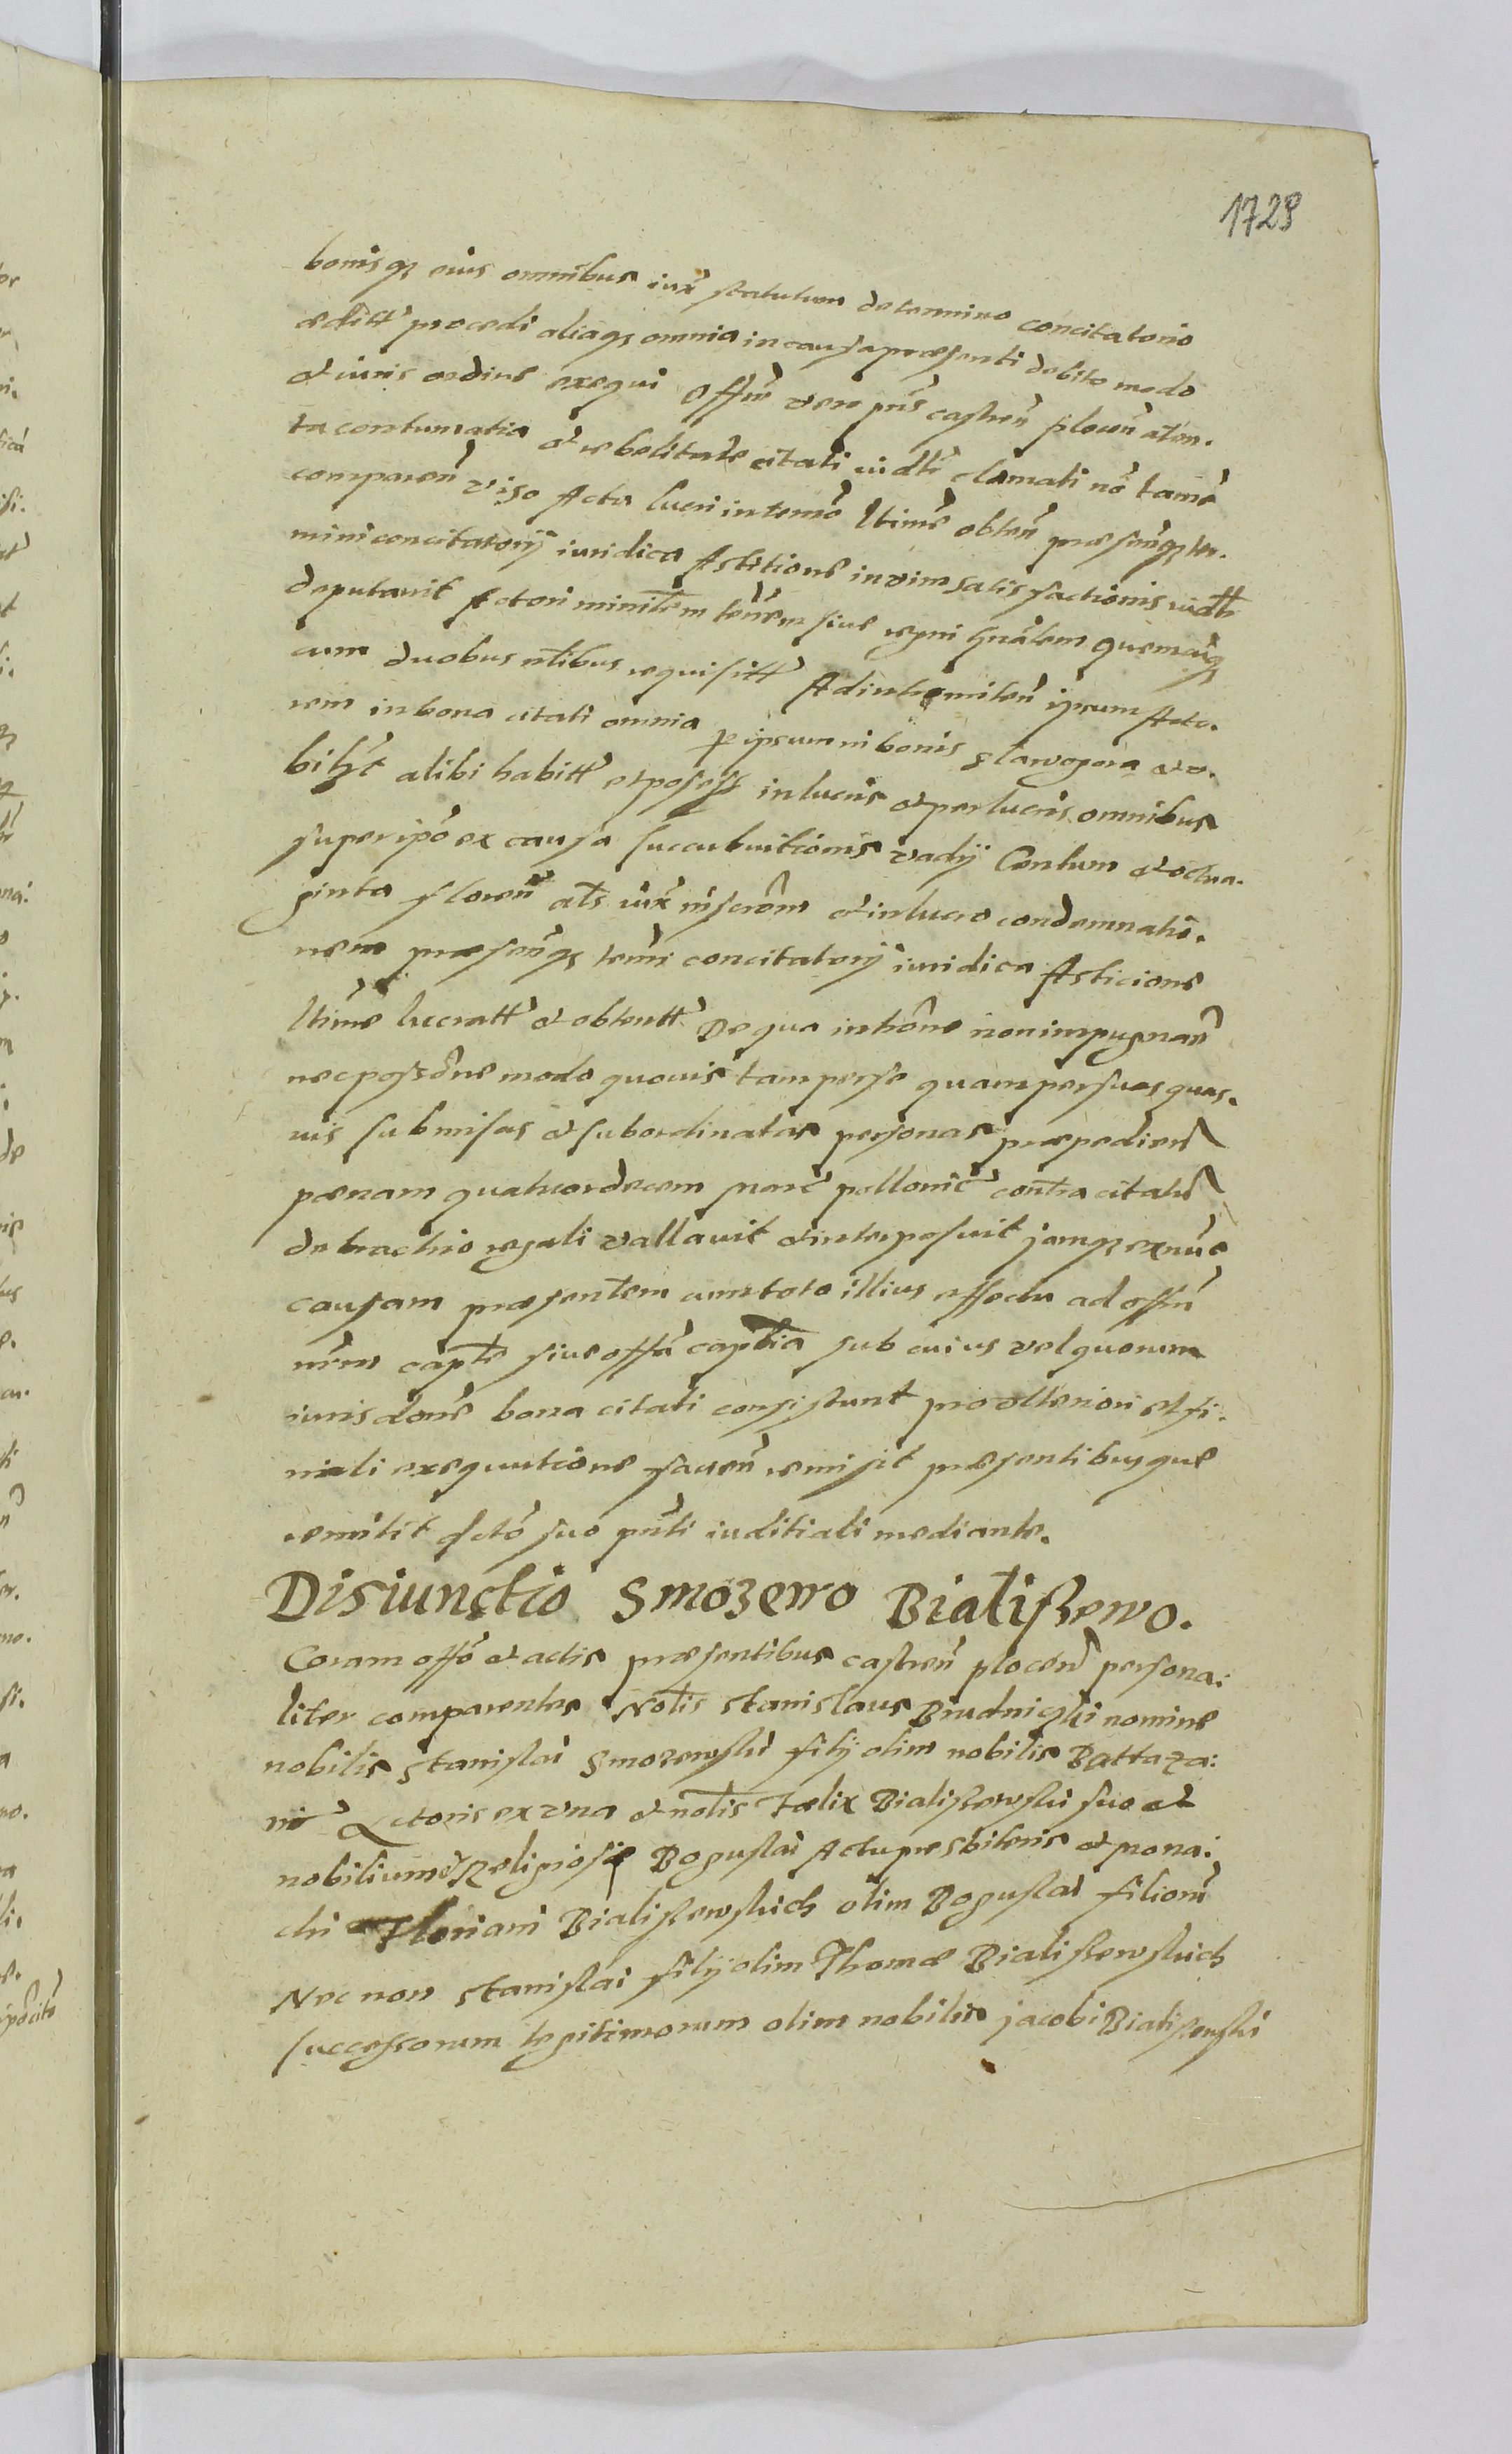 1729
bonisq3 eius omnibus iux statutum de termino concitatorio
æditt procedi aliaq3 omnia in causa præsenti debito modo
et iuris ordine exequi Offm vero pns castren plocen atten.
ta contumatia et rebelitate citati iudtr clamati no tame
comparen viso Actu lucri in termo Ultime obten præsenq3 ter.
mini concitatorij iuridica Astitione in vim satisfactionis iudtt
deputavit Actori ministem terrem sive regni gnalem quemcuq3
cum duobus nlibus requisitt Ad intromiten ipsum Acto.
rem in bona citati omnia p ipsum in bonis glawogora et v.
biq3t alibi habitt et possess in lucris et per lucris omnibus
super ipo ex causa succubuitionis vadij Centum et octua.
ginta floren als iux inscrom et in lucro condemnatio.
nem præsenq3 termi concitatorij iuridica Asticione
Ultime lucratt et obtentt De qua introne non impugnan
nec possone modo quovis tam per se quam per suas quas.
vis submisas et subordinatas personas præpedien
pænam quatuordecem marc pollonic contra citatu
de brachio regali vallavit et interposuit jamq3 ex nuc
causam præsentem cum toto illius effectu ad offm
nrm capte sive offa captia sub cuius vel quorum
iurisdone bona citati consistunt pro Ulteriori et fi.
nali exequutione facien remisit præsentibusque
remitit Acto suo pnti iuditiali mediante.
Disiunctio Smozewo Bialißewo.
Coram offo et actis præsentibus castren plocen persona:
liter comparentes Nobis Stanislaus Brudnigki nomine
nobilis Stanislai Smozewski filij olim nobilis Battaza:
ri Actoris ex una et nolis Fælix Bialißewski suo et
nobilium et Religiosi Boguslai Actu presbiteris et mona:
chi Floriani Bialißewskich olim Boguslai filiom
Nec non Stanislai filij olim Thomæ Bialißewskich
successorum legitimorum olim nobilis jacobi Bialißewski